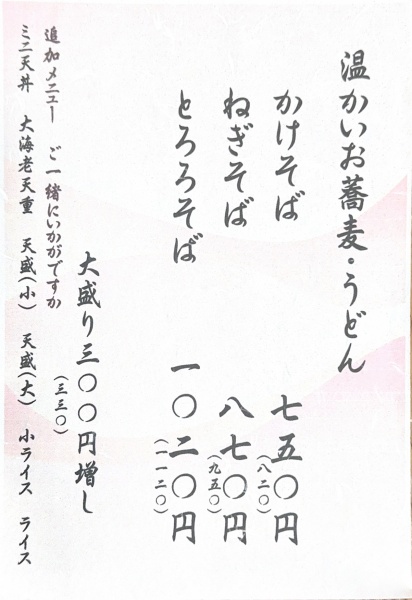 温かいお蕎麦・うどん
かけそば 七五〇円
(八二〇)
ねぎそば 八七〇円
(九五〇)
とろろそば 一〇二〇円
(一一二〇)
大盛り三〇〇円増し
(三三〇)
追加メニュー ご一緒にいかがですか
ミニ天丼 大海老天重 天盛(小) 天盛(大) 小ライス ライス